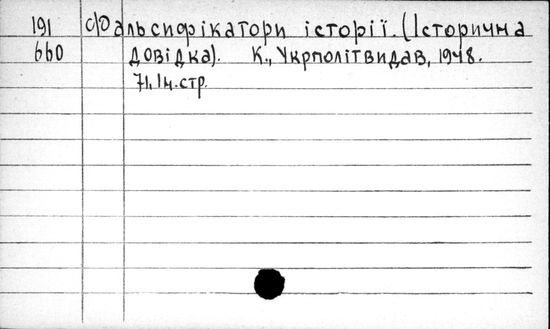 191 Фальсифікатори історії. (Історична
660 довідка). К., Укрполітвидав, 1948.
71, 1н.стр.